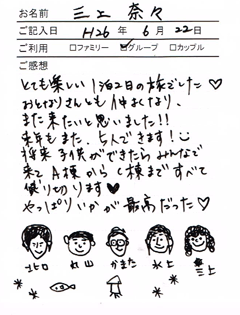 お名前 三上 奈々
ご記入日 H26 年 6 月 22 日
ご利用 □ファミリー ☑グループ □カップル
ご感想
とても楽しい1泊2日の旅でした♡
おとなりさんとも仲よくなり、
また来たいと思いました!!
来年もまた、5人できます!
将来子供ができたらみんなで
来て A棟から C棟まですべて
借り切ります♥
やっぱりいかが最高だった♡
北口 丸山 かまた 水上 三上